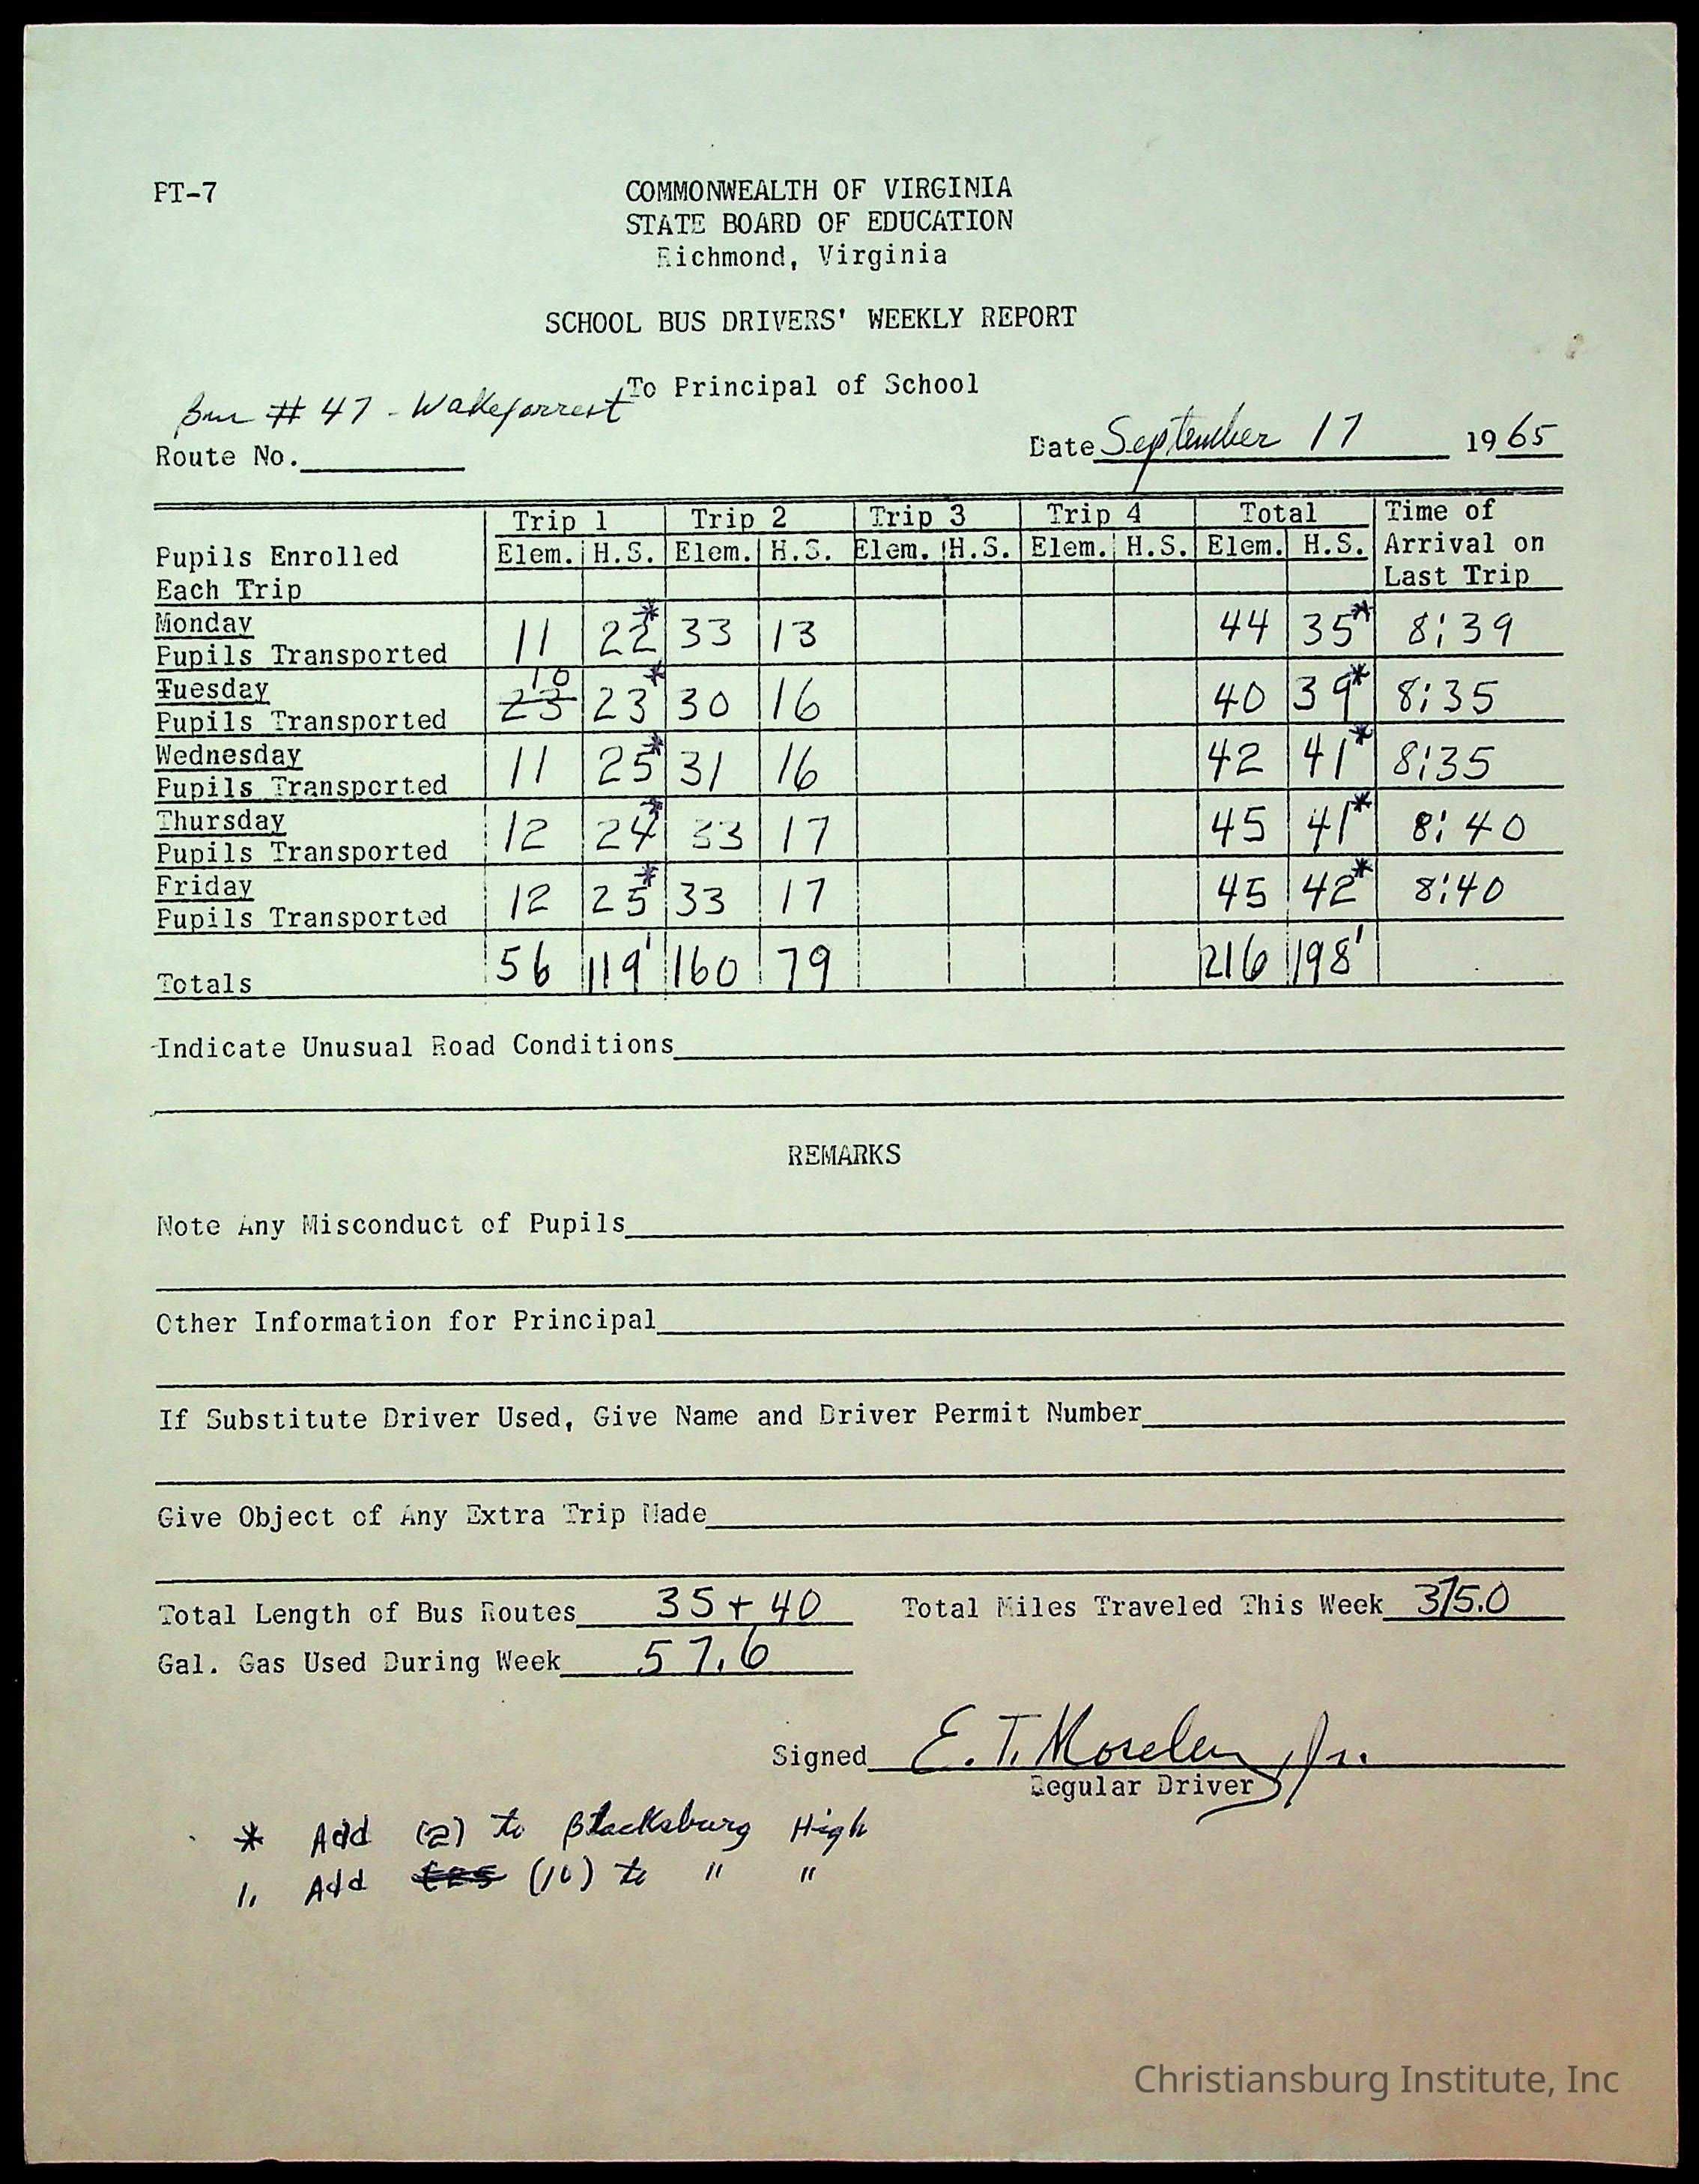 PT-7
COMMONWEALTH OF VIRGINIA
STATE BOARD OF EDUCATION
Richmond, Virginia
SCHOOL BUS DRIVERS' WEEKLY REPORT
To Principal of School
Bus # 47 - Wakeforrest
Route No.
Date September 17 1965
Trip 1 Trip 2 Trip 3 Trip 4 Total Time of
Pupils Enrolled Elem. H.S. Elem. H.S. Elem. H.S. Elem. H.S. Elem. H.S. Arrival on
Each Trip Last Trip
Monday
Pupils Transported 11 22* 33 13 44 35* 8:39
Tuesday
Pupils Transported 23 10 23* 30 16 40 39* 8:35
Wednesday
Pupils Transported 11 25* 31 16 42 41* 8:35
Thursday
Pupils Transported 12 24* 33 17 45 41* 8:40
Friday
Pupils Transported 12 25* 33 17 45 42* 8:40
Totals 56 119' 160 79 216 198'
Indicate Unusual Road Conditions
REMARKS
Note Any Misconduct of Pupils
Other Information for Principal
If Substitute Driver Used, Give Name and Driver Permit Number
Give Object of Any Extra Trip Made
Total Length of Bus Routes 35 + 40 Total Miles Traveled This Week 375.0
Gal. Gas Used During Week 57.6
Signed E. T. Moseley Jr.
Regular Driver
* Add (2) to Blacksburg High
1. Add (10) to " "
Christiansburg Institute, Inc